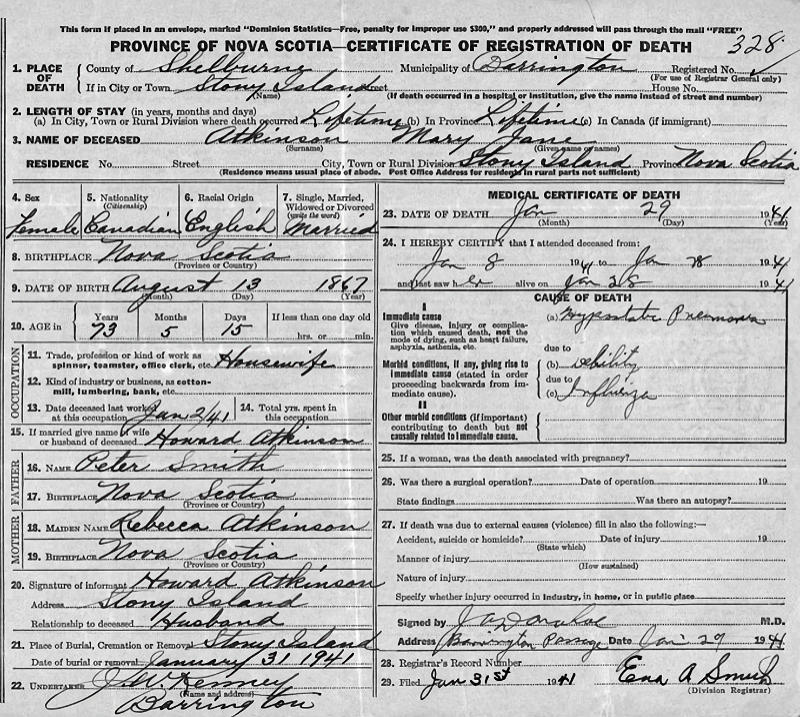 This form if placed in an envelope, marked "Dominion Statistics—Free, penalty for improper use $300," and properly addressed will pass through the mail "FREE"
PROVINCE OF NOVA SCOTIA—CERTIFICATE OF REGISTRATION OF DEATH
328
1. PLACE OF DEATH
County of Shelburne Municipality of Barrington Registered No.
(For use of Registrar General only)
If in City or Town Stony Island Street House No.
(Name) (If death occurred in a hospital or institution, give the name instead of street and number)
2. LENGTH OF STAY (in years, months and days)
(a) In City, Town or Rural Division where death occurred Lifetime (b) In Province Lifetime (c) In Canada (if immigrant)
3. NAME OF DECEASED Atkinson Mary Jane
(Surname) (Given name or names)
RESIDENCE No. Street City, Town or Rural Division Stony Island Province Nova Scotia
(Residence means usual place of abode. Post Office Address for residents in rural parts not sufficient)
4. Sex
Female
5. Nationality
(Citizenship)
Canadian
6. Racial Origin
English
7. Single, Married, Widowed or Divorced
(write the word)
Married
8. BIRTHPLACE Nova Scotia
(Province or Country)
9. DATE OF BIRTH August 13 1867
(Month) (Day) (Year)
10. AGE in
Years Months Days If less than one day old
73 5 15 hrs. or min.
OCCUPATION
11. Trade, profession or kind of work as
spinner, teamster, office clerk, etc. Housewife
12. Kind of industry or business, as cotton-
mill, lumbering, bank, etc.
13. Date deceased last worked at this occupation Jan 2/41
14. Total yrs. spent in this occupation
15. If married give name of wife
or husband of deceased Howard Atkinson
FATHER
16. NAME Peter Smith
17. BIRTHPLACE Nova Scotia
(Province or Country)
MOTHER
18. MAIDEN NAME Rebecca Atkinson
19. BIRTHPLACE Nova Scotia
(Province or Country)
20. Signature of informant Howard Atkinson
Address Stony Island
Relationship to deceased Husband
21. Place of Burial, Cremation or Removal Stony Island
Date of burial or removal January 31 1941
22. UNDERTAKER J.W. Kenney
(Name and address)
Barrington
MEDICAL CERTIFICATE OF DEATH
23. DATE OF DEATH Jan 29 1941
(Month) (Day) (Year)
24. I HEREBY CERTIFY that I attended deceased from:
Jan 8 1941 to Jan 28 1941
and last saw her alive on Jan 28 1941
CAUSE OF DEATH
I
Immediate cause
Give disease, injury or complica-
tion which caused death, not the
mode of dying, such as heart failure,
asphyxia, asthenia, etc.
(a) Hypostatic Pneumonia
due to
Morbid conditions, if any, giving rise to
immediate cause (stated in order
proceeding backwards from im-
mediate cause).
(b) Debility
due to
(c) Influenza
II
Other morbid conditions (if important)
contributing to death but not
causally related to immediate cause.
25. If a woman, was the death associated with pregnancy?
26. Was there a surgical operation? Date of operation 19
State findings Was there an autopsy?
27. If death was due to external causes (violence) fill in also the following:—
Accident, suicide or homicide? Date of injury 19
(State which)
Manner of injury
(How sustained)
Nature of injury
Specify whether injury occurred in industry, in home, or in public place
Signed by M.D.
Address Barrington Passage Date Jan 29 1941
28. Registrar's Record Number
29. Filed Jan 31st 1941 Ena A Smith
(Division Registrar)